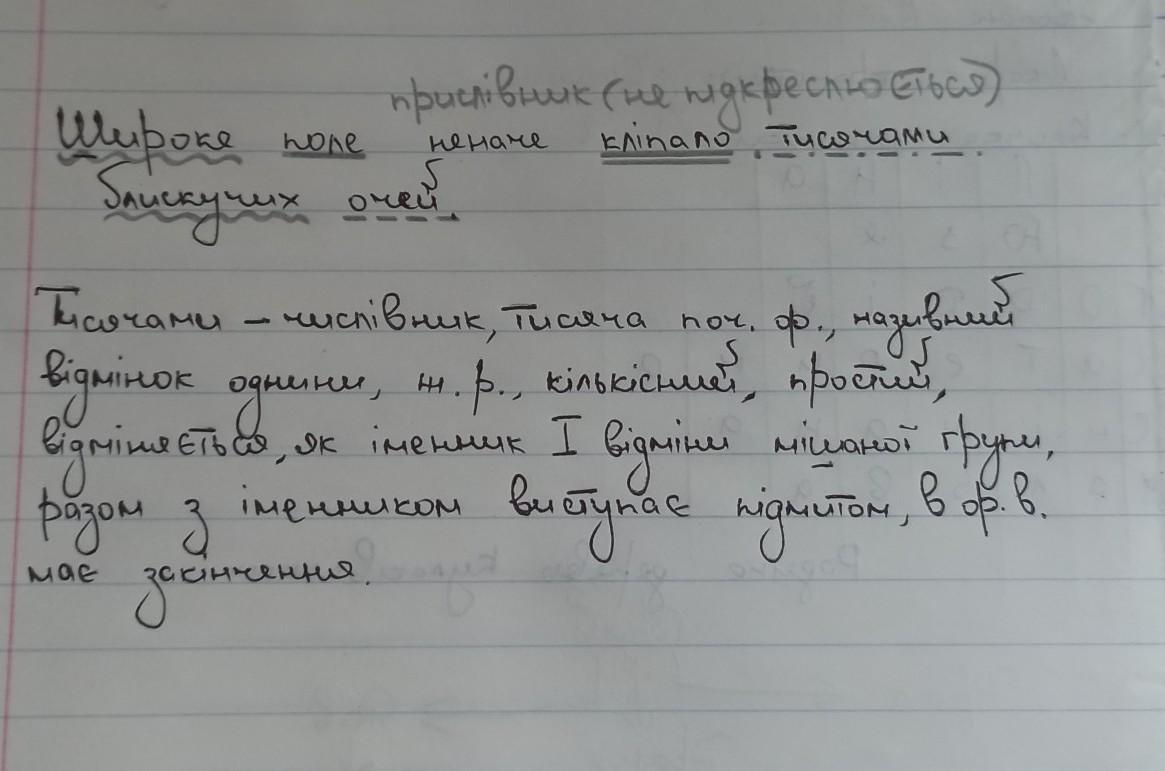 прислівник (не підкреслюється)
Широке поле неначе кліпало тисячами
блискучих очей.
Тисячами – числівник, тисяча поч. ф., називний
відмінок однини, ж. р., кількісний, простий,
відміняється, як іменник I відміни мішаної групи,
разом з іменником виступає підмитом, в ор. в.
має закінчення.